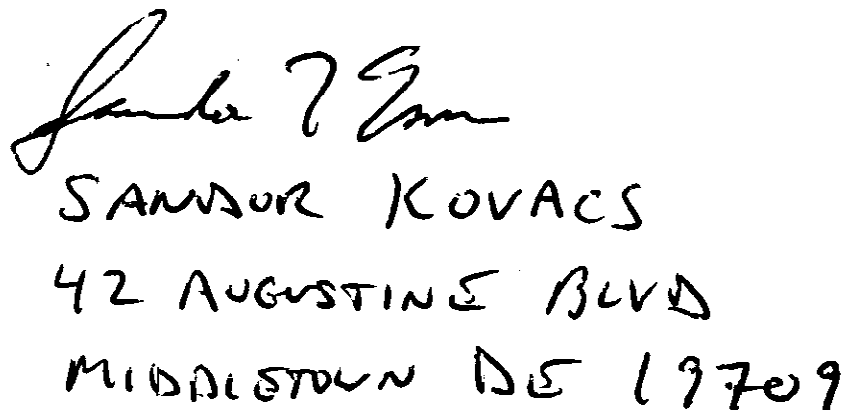 SANDOR KOVACS
42 AUGUSTINE BLVD
MIDDLETOWN DE 19709